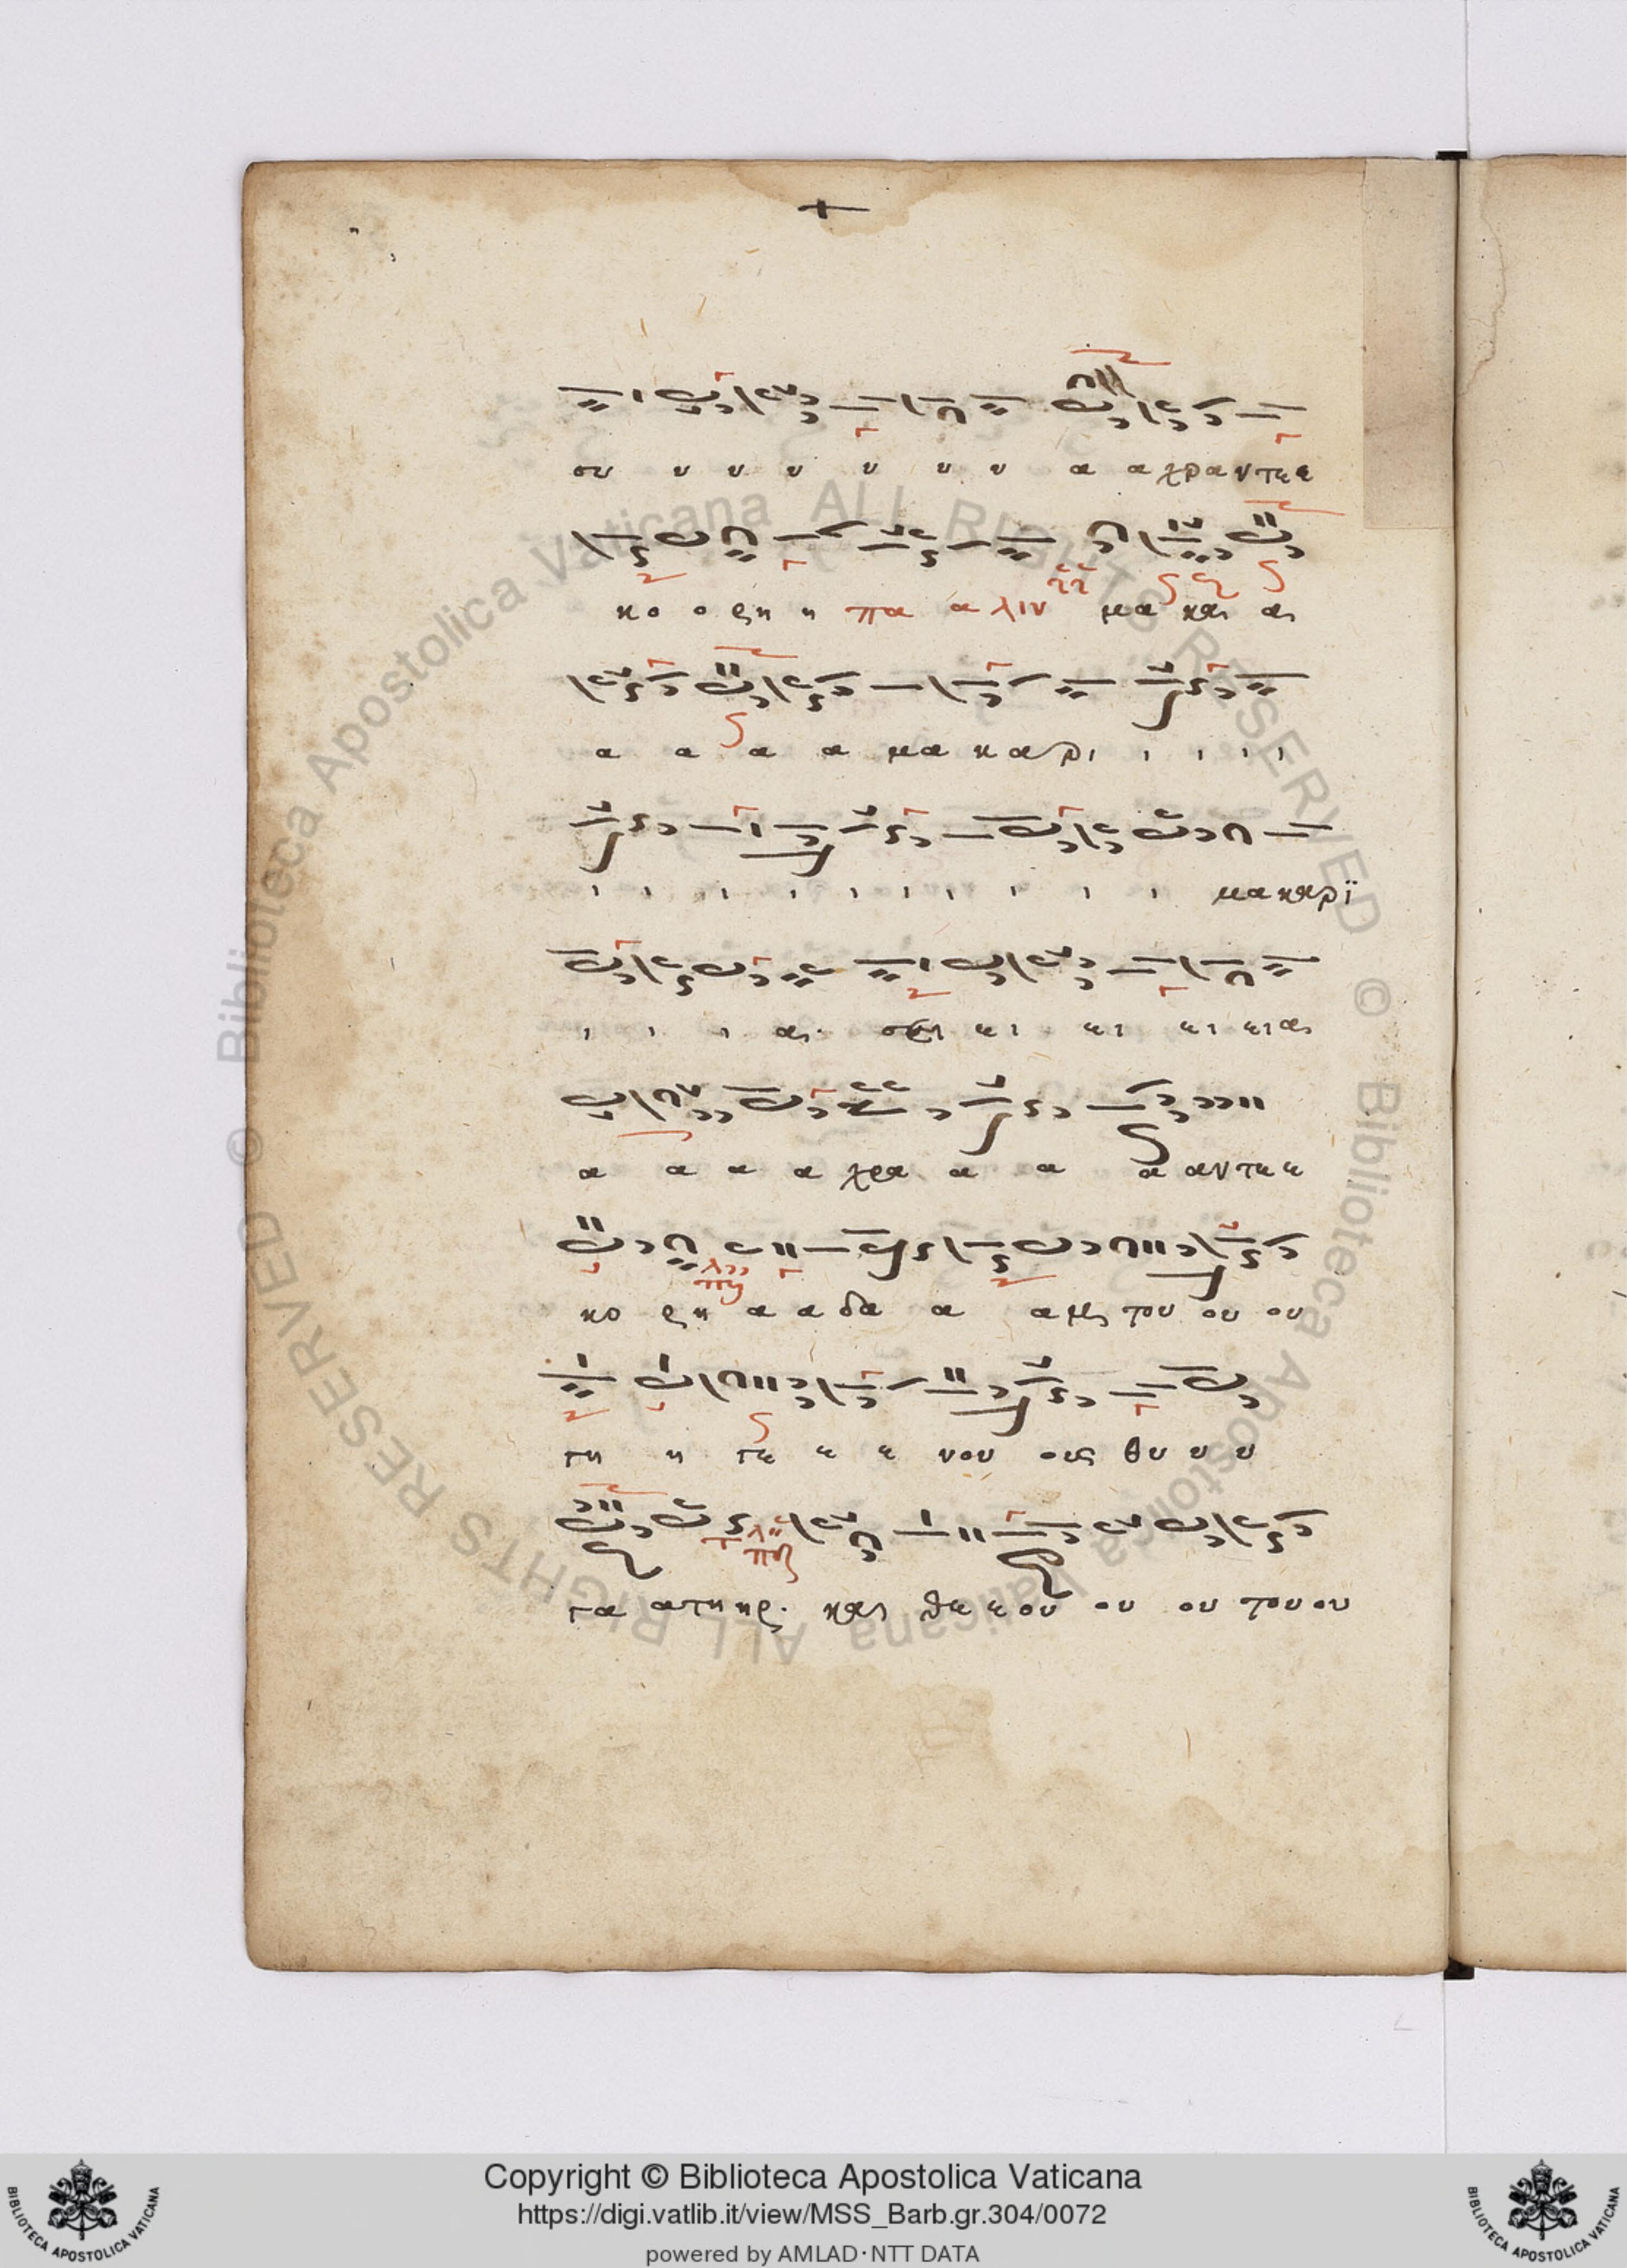 συ υ υ υ υ υ υ α αχραντε ε
κο ο ρη η πα α λιν μα και αι
α α α α μα καρι ι ι ι ι
ι ι ι ι ι ι ι ι ι ι μακαρϊ
ι ι ι αι. σκει ει ει ει ειαι
α α α α χρα α α α αντε ε
κο ρη α α δα α αμ του ου ου
τη η τε ε ε νου ους θυ υ υ
τα ατηηρ. και θε εου ου ου του ου
© Biblioteca Apostolica Vaticana ALL RIGHTS RESERVED © Biblioteca Apostolica Vaticana ALL RIGHTS RESERVED
Copyright © Biblioteca Apostolica Vaticana
https://digi.vatlib.it/view/MSS_Barb.gr.304/0072
powered by AMLAD·NTT DATA
BIBLIOTECA APOSTOLICA VATICANA
BIBLIOTECA APOSTOLICA VATICANA